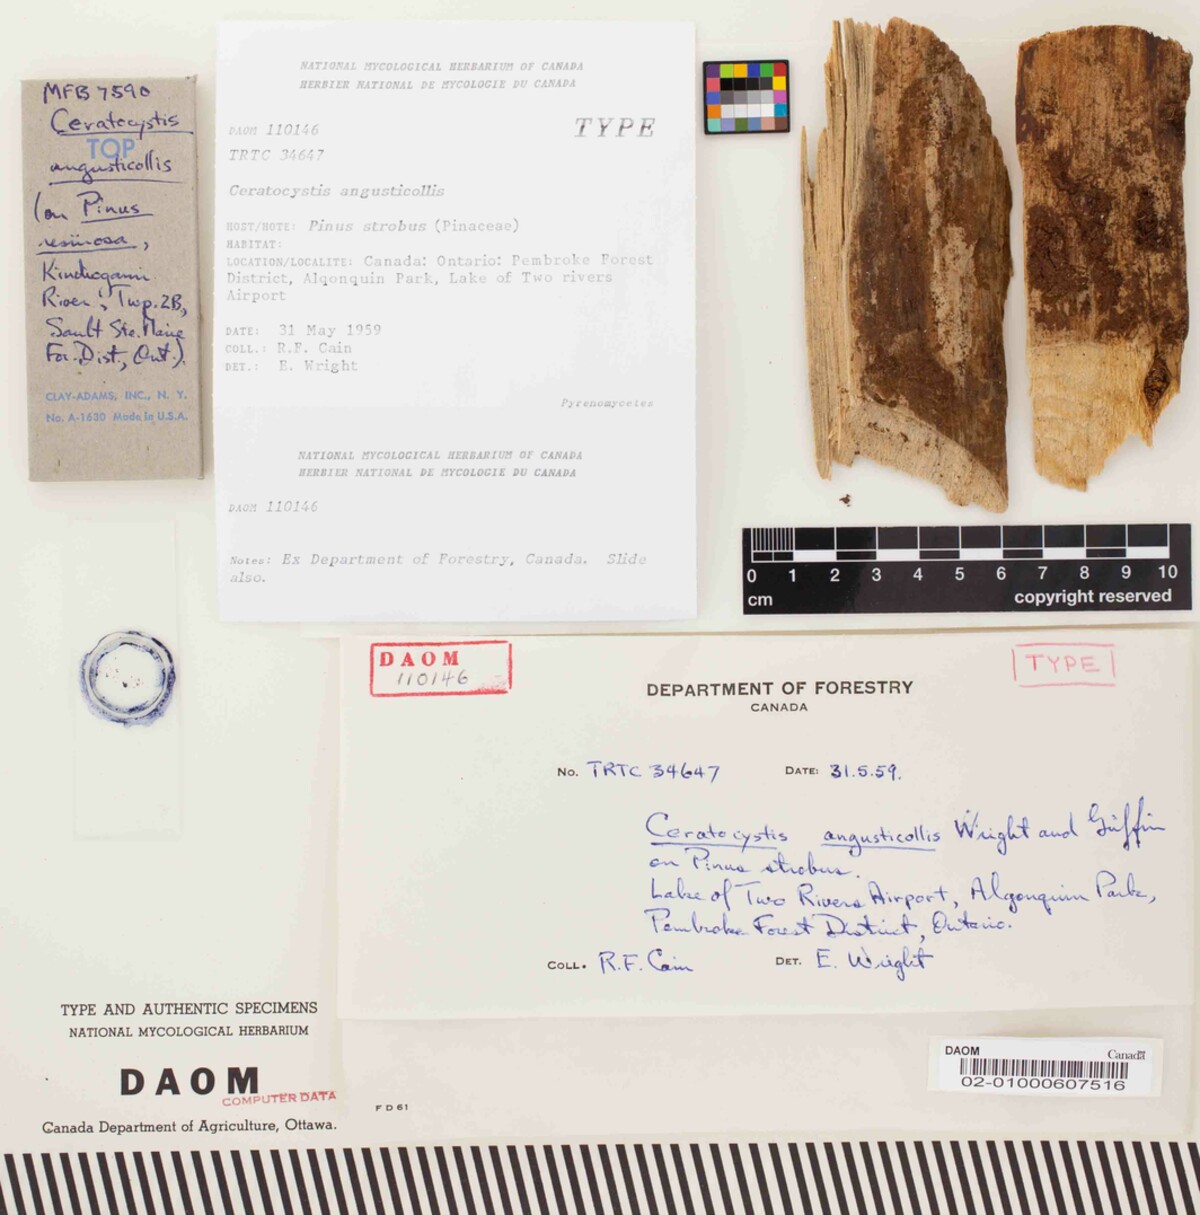 MFB 7590
Ceratocystis
TOP
angusticollis
(on Pinus
resinosa,
River, Twp. 2B,
Sault Ste. Marie
For. Dist., Ont.)
CLAY-ADAMS, INC., N. Y.
No. A-1630 Made in U.S.A.
NATIONAL MYCOLOGICAL HERBARIUM OF CANADA
HERBIER NATIONAL DE MYCOLOGIE DU CANADA
DAOM 110146
TYPE
TRTC 34647
Ceratocystis angusticollis
HOST/HOTE: Pinus strobus (Pinaceae)
HABITAT:
LOCATION/LOCALITE: Canada: Ontario: Pembroke Forest
District, Algonquin Park, Lake of Two rivers
Airport
DATE: 31 May 1959
COLL.: R.F. Cain
DET.: E. Wright
Pyrenomycetes
NATIONAL MYCOLOGICAL HERBARIUM OF CANADA
HERBIER NATIONAL DE MYCOLOGIE DU CANADA
DAOM 110146
Notes: Ex Department of Forestry, Canada. Slide
also.
0 1 2 3 4 5 6 7 8 9 10
cm copyright reserved
DAOM
110146
TYPE
DEPARTMENT OF FORESTRY
CANADA
No. TRTC 34647 DATE: 31.5.59.
Ceratocystis angusticollis Wright and Griffin
on Pinus strobus.
Lake of Two Rivers Airport, Algonquin Park,
Pembroke Forest District, Ontario.
COLL. R.F. Cain DET. E. Wright
FD 61
TYPE AND AUTHENTIC SPECIMENS
NATIONAL MYCOLOGICAL HERBARIUM
DAOM
COMPUTER DATA
Canada Department of Agriculture, Ottawa.
DAOM Canada
02-01000607516